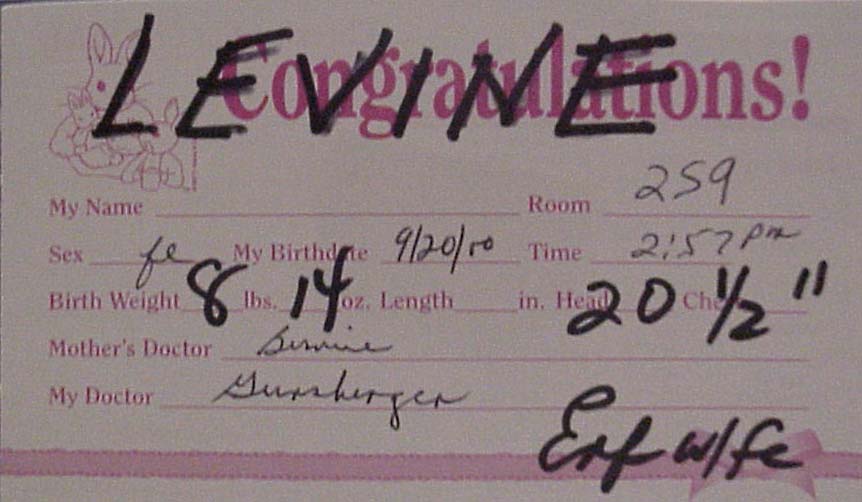 LEVINE
Congratulations!
My Name Room 259
Sex fe My Birthdate 9/20/00 Time 2:57 pm
Birth Weight 8 lbs. 14 oz. Length in. Head 20 1/2"
Mother's Doctor
My Doctor
Enf w/fe